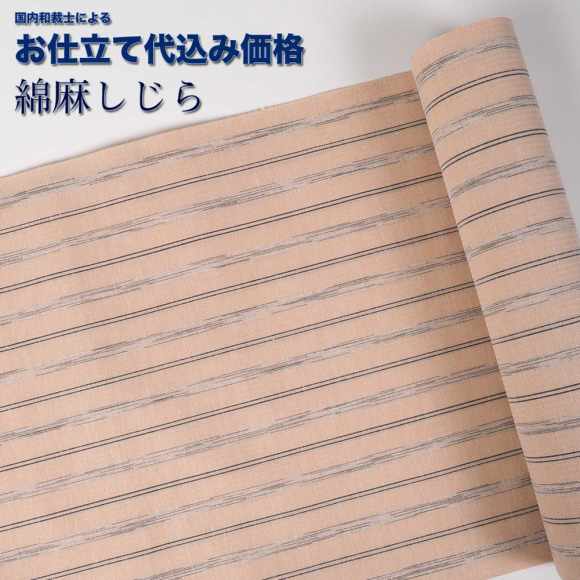 国内和裁士による
お仕立て代込み価格
綿麻しじら